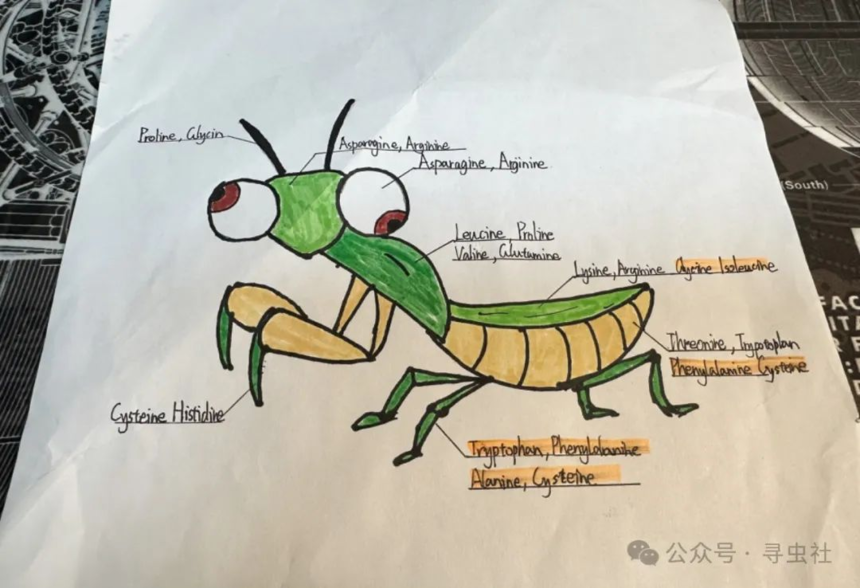 Proline, Glycin
Asparagine, Arginine
Asparagine, Arginine
Leucine Proline
Valine, Glutamine
Lysine, Arginine Glycine Isoleucine
Threonine, Tryptophan
Phenylalanine Cysteine
Cysteine Histidine
Tryptophan, Phenylalanine
Alanine, Cysteine
(South)
公众号 · 寻虫社